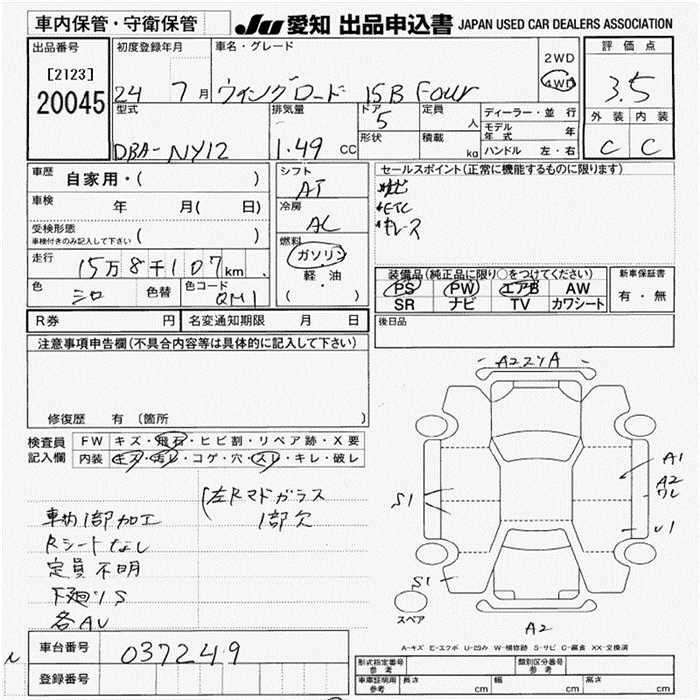 車内保管・守衛保管
JU 愛知 出品申込書 JAPAN USED CAR DEALERS ASSOCIATION
出品番号
[2123]
20045
初度登録年月
24 7月
車名・グレード
ウイングロード 15B Four
2WD
4WD
評価点
3.5
外装 内装
C C
型式
DBA-NY12
排気量
1.49 CC
ドア
5
形状
定員
人
積載
kg
ディーラー・並行
モデル年式 年
ハンドル 左・右
車歴
自家用・( )
車検
年 月( 日)
受検形態
車検付きのみ記入して下さい ( )
走行
15万8千107km
色
シロ
色替
色コード
QM1
シフト
AT
冷房
AC
燃料
ガソリン
軽・油
( )
セールスポイント(正常に機能するものに限ります)
・ナビ
・ETC
装備品(純正品に限り○をつけてください)
PS PW エアB AW
SR ナビ TV カワシート
新車保証書
有・無
後日品
R券 円
名変通知期限 月 日
注意事項申告欄(不具合内容等は具体的に記入して下さい)
修復歴 有 〔箇所 〕
検査員記入欄
FW キズ・飛石・ヒビ割・リペア跡・X要
内装 キズ・汚レ・コゲ・穴・スレ・キレ・破レ
(左Rマドガラス
1部欠
車内1部加工
Rシートなし
定員不明
下廻りS
各AU
A2 2ﾘA
S1
A1
A2
ワレ
U1
S1
スペア
A2
A-キズ E-エクボ U-凹み W-補修跡 S-サビ C-腐食 XX-交換済
車台番号
037249
登録番号
形式指定番号 参考
類別区分番号 参考
車庫証明用 参考
長さ cm
幅 cm
高さ cm